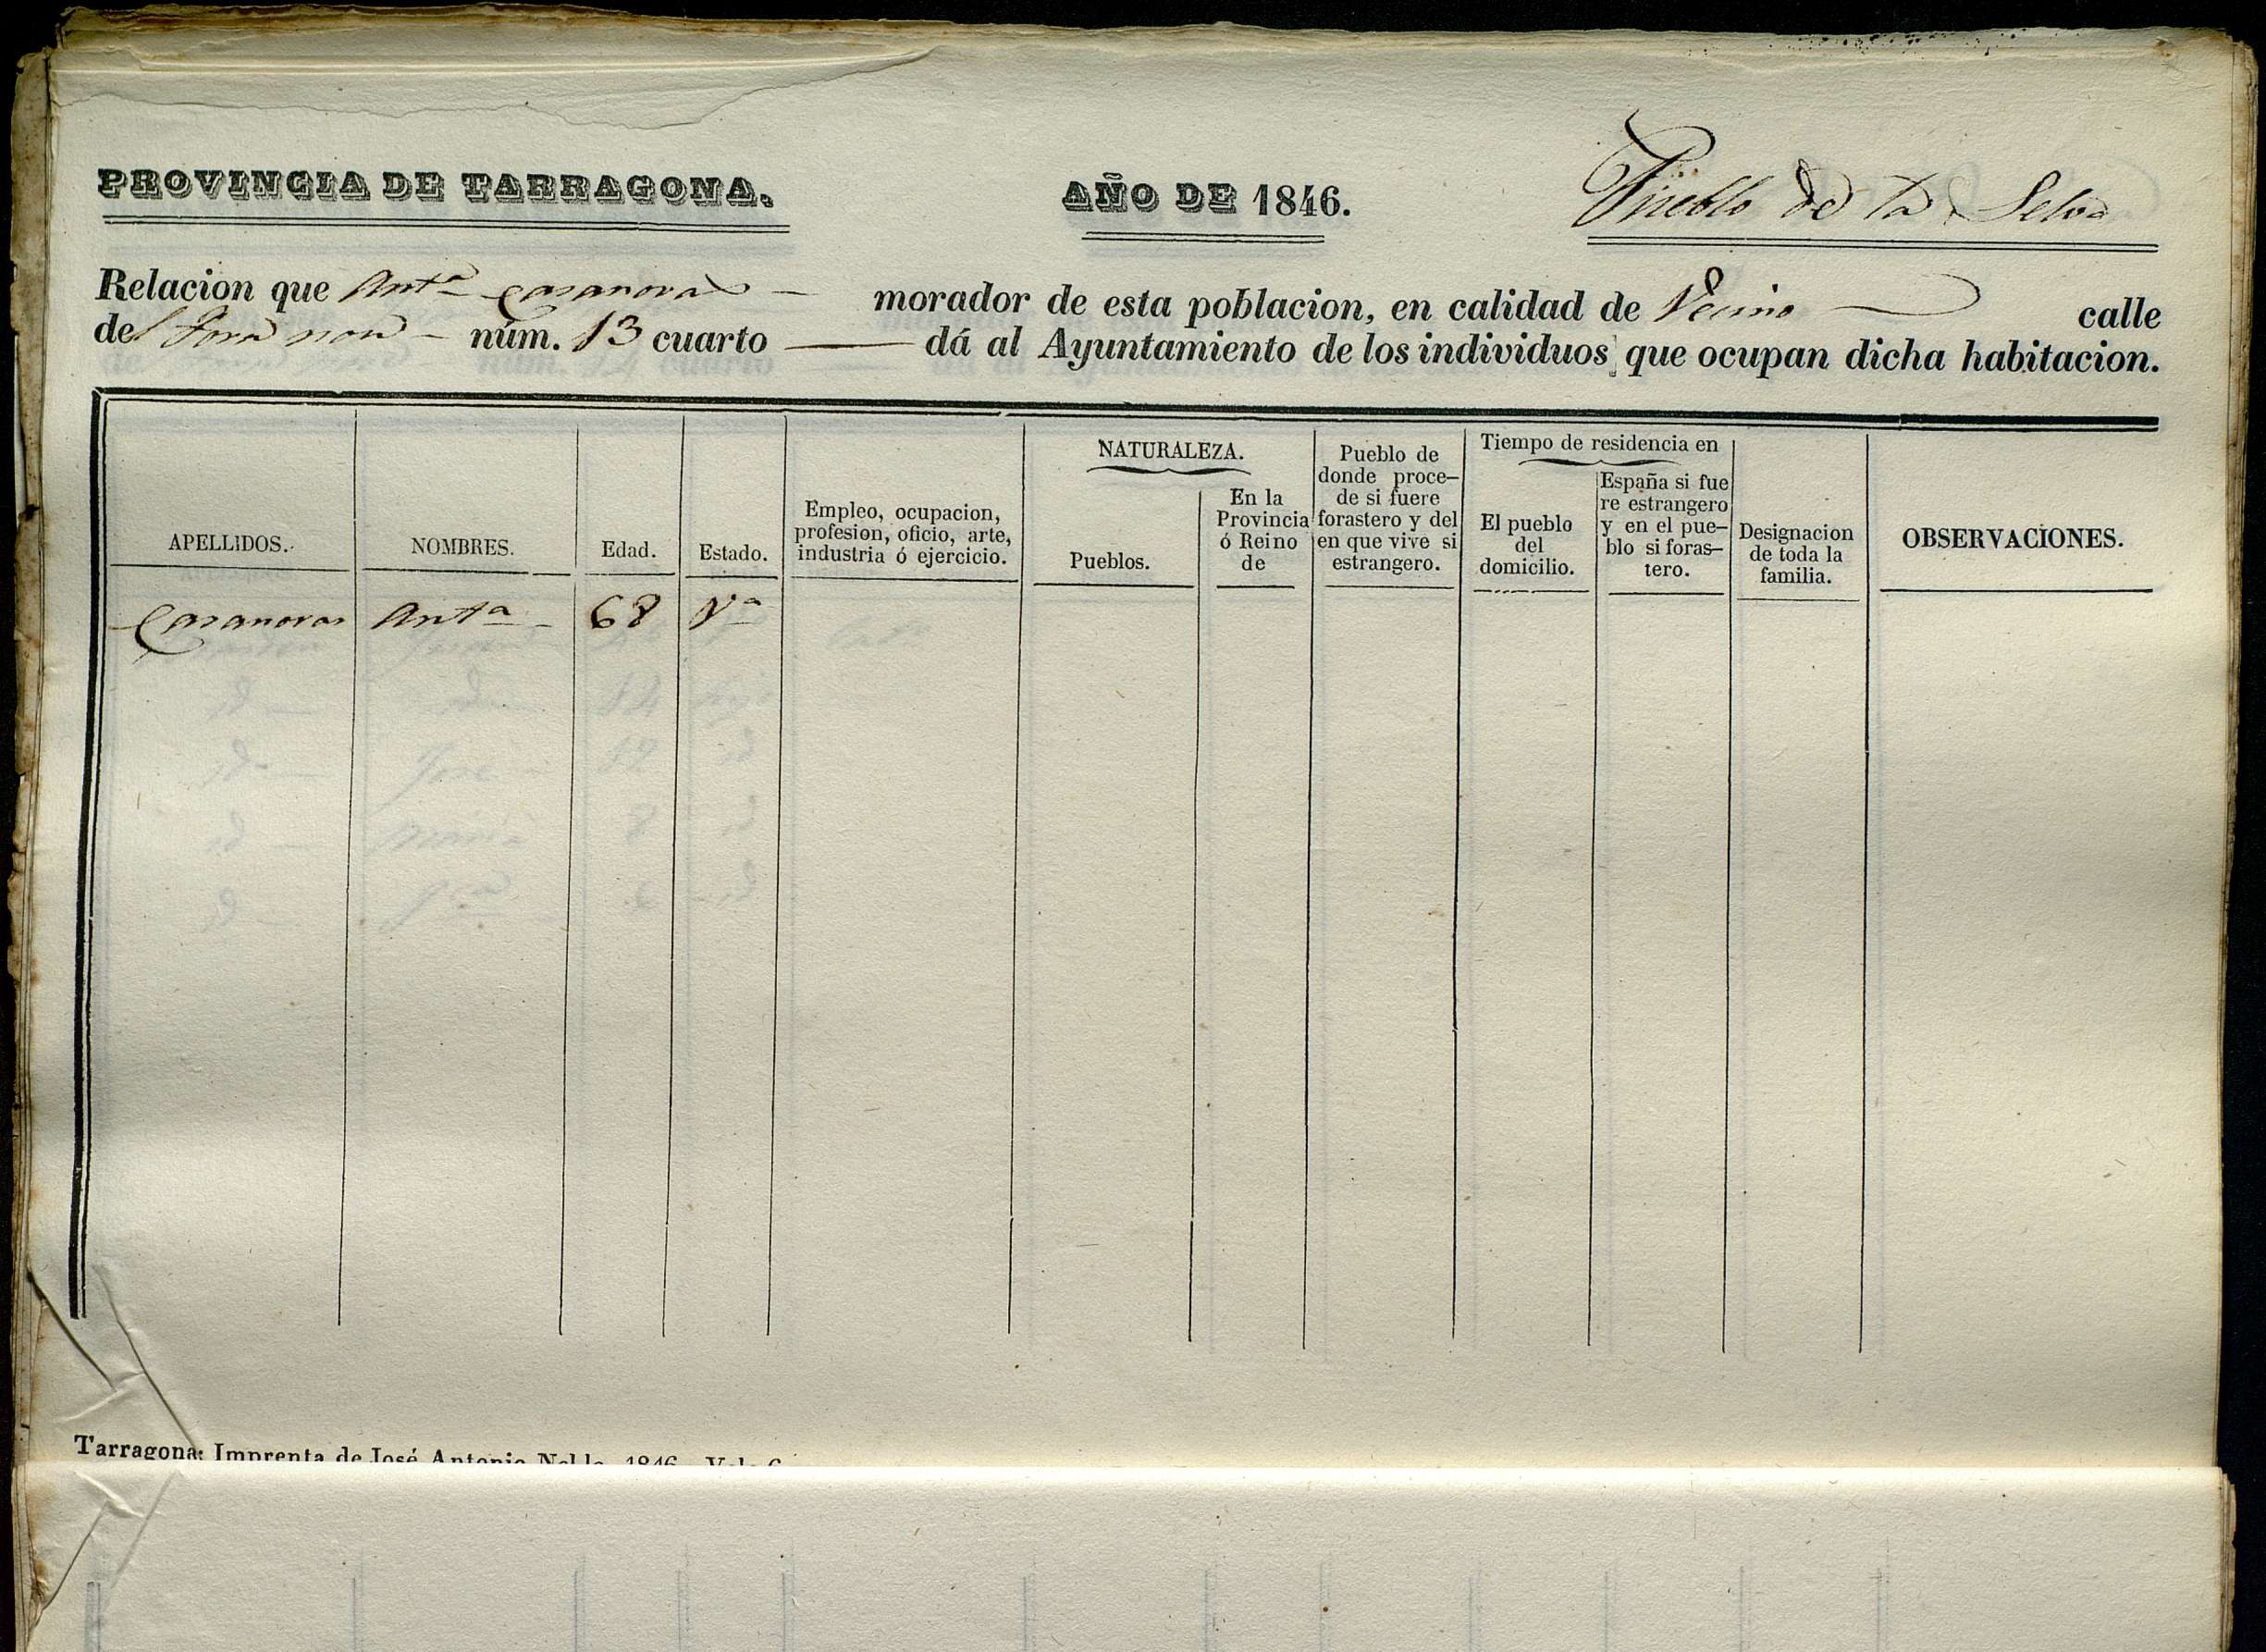 PROVINCIA DE TARRAGONA. AÑO DE 1846. Pueblo de la Selva
Relacion que Antª Casanovas morador de esta poblacion, en calidad de Vecino calle
del núm. 13 cuarto dá al Ayuntamiento de los individuos que ocupan dicha habitacion.
APELLIDOS.
NOMBRES.
Edad.
Estado.
Empleo, ocupacion,
profesion, oficio, arte,
industria ó ejercicio.
NATURALEZA.
Pueblos.
En la
Provincia
ó Reino
de
Pueblo de
donde proce-
de si fuere
forastero y del
en que vive si
estrangero.
Tiempo de residencia en
El pueblo
del
domicilio.
España si fue
re estrangero
y en el pue-
blo si foras-
tero.
Designacion
de toda la
familia.
OBSERVACIONES.
Casanovas Antª 68 Vª
Tarragona: Imprenta de José Antonio 1846.